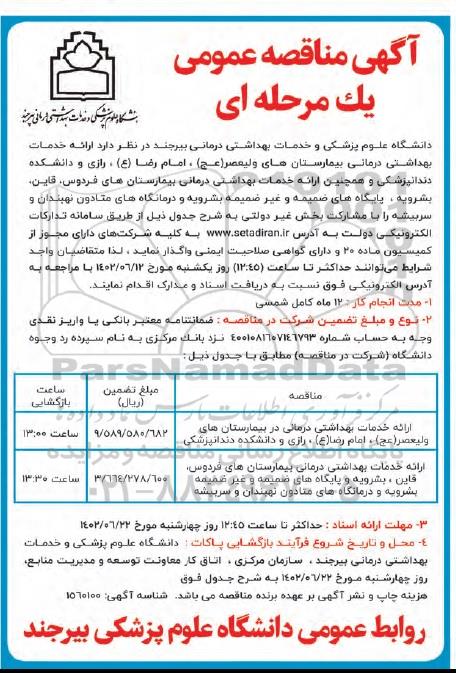 آگهی مناقصه عمومی
یک مرحله ای
دانشگاه علوم پزشکی و خدمات بهداشتی درمانی بیرجند
دانشگاه علوم پزشکی و خدمات بهداشتی درمانی بیرجند در نظر دارد ارائه خدمات
بهداشتی درمانی بیمارستان های ولیعصر(عج) ، امام رضا (ع) ، رازی و دانشکده
دندانپزشکی و همچنین ارائه خدمات بهداشتی درمانی بیمارستان های فردوس، قاین،
بشرویه ، پایگاه های ضمیمه و غیر ضمیمه بشرویه و درمانگاه های متادون نهبندان و
سربیشه را با مشارکت بخش غیر دولتی به شرح جدول ذیل از طریق سامانه تدارکات
الکترونیکی دولت به آدرس www.setadiran.ir به کلیه شرکت‌های دارای مجوز از
کمیسیون ماده ۲۰ و دارای گواهی صلاحیت ایمنی واگذار نماید ، لذا متقاضیان واجد
شرایط می‌توانند حداکثر تا ساعت (۱۲:۴۵) روز یکشنبه مورخ ۱۴۰۲/۰۶/۱۲ با مراجعه به
آدرس الکترونیکی فوق نسبت به دریافت اسناد و مدارک اقدام نمایند.
۱- مدت انجام کار : ۱۲ ماه کامل شمسی
۲- نوع و مبلغ تضمین شرکت در مناقصه : ضمانتنامه معتبر بانکی یا واریز نقدی
وجه به حساب شماره ۴۰۰۱۰۸۱۶۰۷۱۴۶۷۹۳ نزد بانک مرکزی به نام سپرده رد وجوه
دانشگاه (شرکت در مناقصه) مطابق با جدول ذیل :
مناقصه
مبلغ تضمین (ریال)
ساعت بازگشایی
ارائه خدمات بهداشتی درمانی در بیمارستان های
ولیعصر(عج) ، امام رضا(ع) ، رازی و دانشکده دندانپزشکی
۹/۵۸۹/۵۸۰/۶۸۲
ساعت ۱۳:۰۰
ارائه خدمات بهداشتی درمانی بیمارستان های فردوس،
قاین ، بشرویه و پایگاه های ضمیمه و غیر ضمیمه
بشرویه و درمانگاه های متادون نهبندان و سربیشه
۳/۶۶۴/۲۷۸/۶۰۰
ساعت ۱۳:۳۰
۳- مهلت ارائه اسناد : حداکثر تا ساعت ۱۲:۴۵ روز چهارشنبه مورخ ۱۴۰۲/۰۶/۲۲
۴- محل و تاریخ شروع فرآیند بازگشایی پاکات : دانشگاه علوم پزشکی و خدمات
بهداشتی درمانی بیرجند ، سازمان مرکزی ، اتاق کار معاونت توسعه و مدیریت منابع،
روز چهارشنبه مورخ ۱۴۰۲/۰۶/۲۲ به شرح جدول فوق
هزینه چاپ و نشر آگهی بر عهده برنده مناقصه می باشد. شناسه آگهی: ۱۵۶۰۱۰۰
روابط عمومی دانشگاه علوم پزشکی بیرجند
ParsNamadData